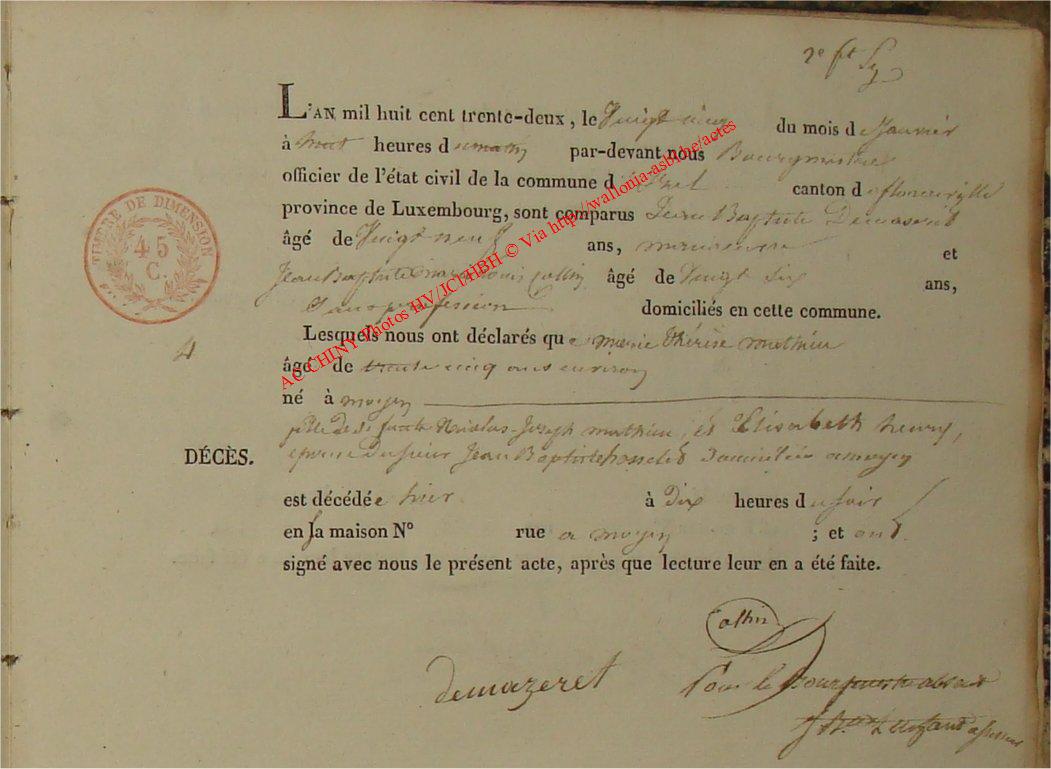 2e ft
L'AN mil huit cent trente-deux, le Vingt du mois de Janvier
à huit heures du matin par-devant nous Bourgmestre
officier de l'état civil de la commune d'izel canton de florenville
province de Luxembourg, sont comparus Jean Baptiste Demaseret
âgé de Vingt neuf ans, et
Jean Baptiste Louis Collin âgé de Vingt Six ans,
Sans profession domiciliés en cette commune.
Lesquels nous ont déclarés que marie thérèse mathieu
âgé de trente cinq ans environ
né à moyen
fille de Nicolas-Joseph mathieu, et Elisabeth henry,
epouse du sieur Jean Baptiste domiciliée a moyen
DÉCÈS.
est décédée hier à Dix heures du soir
en Sa maison No rue a moyen ; et ont
signé avec nous le présent acte, après que lecture leur en a été faite.
Collin
demazeret Pour le Bourgmestre absent
assesseur
TIMBRE DE DIMENSION
45
C.
4
AC CHINY Photos HV/JCI/HBH © Via http://wallonia-asbl.be/actes